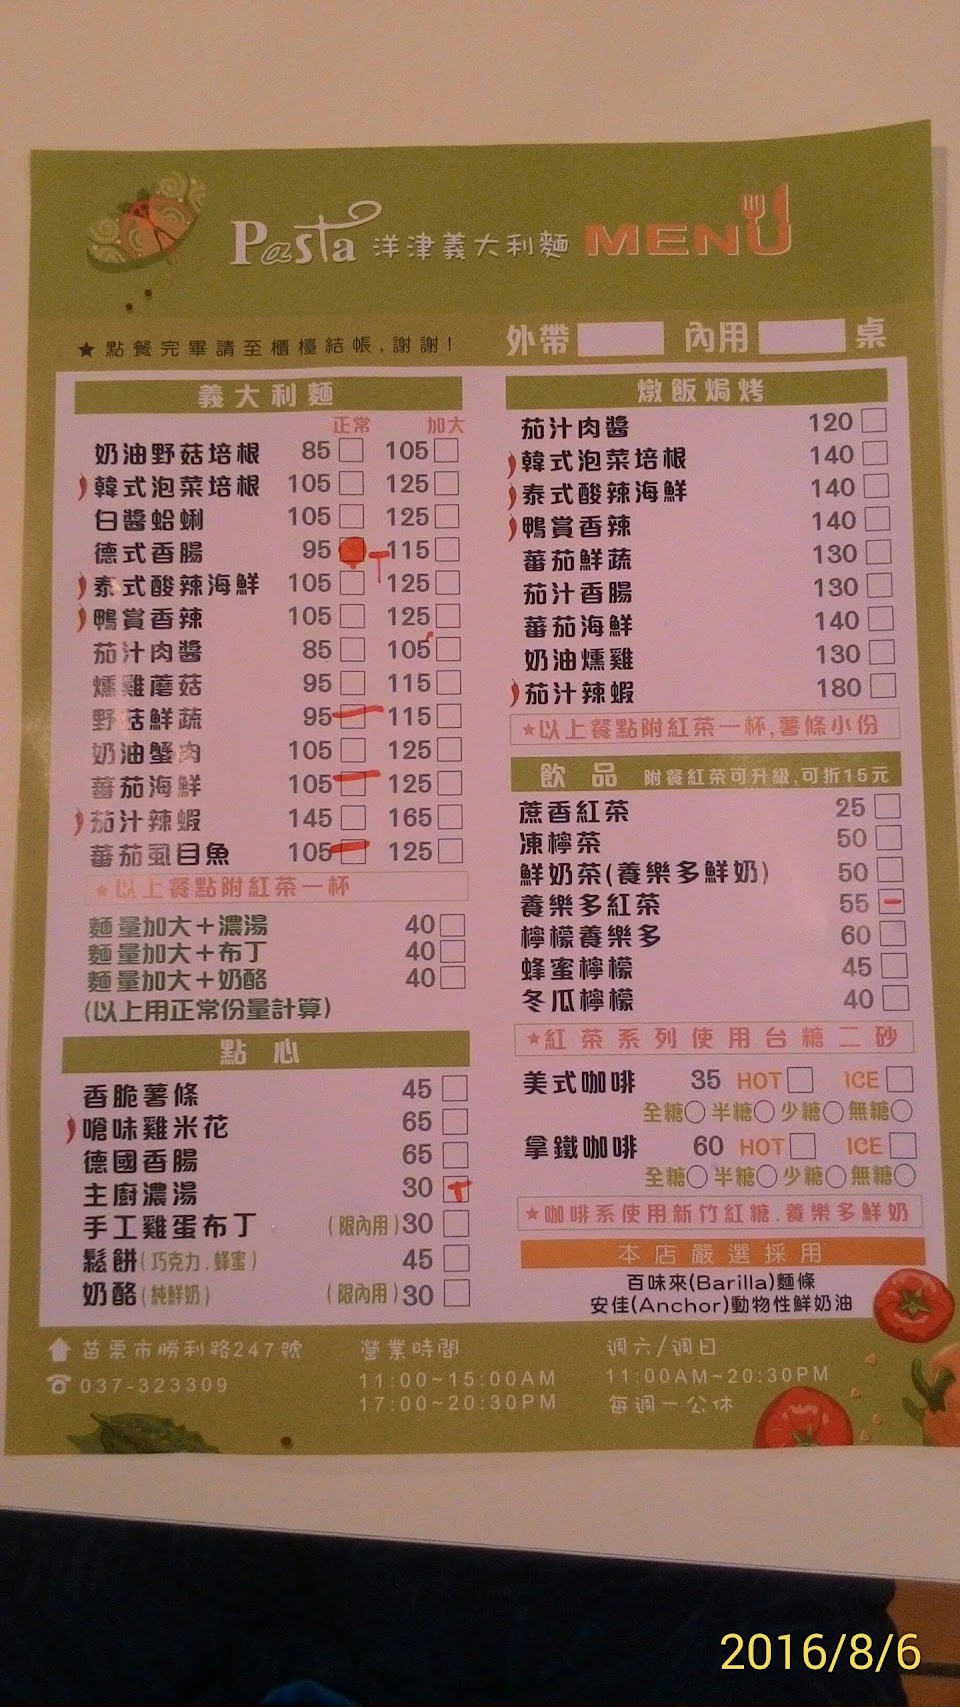 Pasta 洋津義大利麵 MENU
★點餐完畢請至櫃檯結帳,謝謝!
外帶 內用 桌
義大利麵
正常 加大
奶油野菇培根 85 105
韓式泡菜培根 105 125
白醬蛤蜊 105 125
德式香腸 95 115
泰式酸辣海鮮 105 125
鴨賞香辣 105 125
茄汁肉醬 85 105
燻雞蘑菇 95 115
野菇鮮蔬 95 115
奶油蟹肉 105 125
蕃茄海鮮 105 125
茄汁辣蝦 145 165
蕃茄虱目魚 105 125
★以上餐點附紅茶一杯
麵量加大+濃湯 40
麵量加大+布丁 40
麵量加大+奶酪 40
(以上用正常份量計算)
點心
香脆薯條 45
嗆味雞米花 65
德國香腸 65
主廚濃湯 30
手工雞蛋布丁 (限內用) 30
鬆餅(巧克力.蜂蜜) 45
奶酪(純鮮奶) (限內用) 30
燉飯焗烤
茄汁肉醬 120
韓式泡菜培根 140
泰式酸辣海鮮 140
鴨賞香辣 140
蕃茄鮮蔬 130
茄汁香腸 130
蕃茄海鮮 140
奶油燻雞 130
茄汁辣蝦 180
★以上餐點附紅茶一杯,薯條小份
飲品 附餐紅茶可升級,可折15元
蔗香紅茶 25
凍檸茶 50
鮮奶茶(養樂多鮮奶) 50
養樂多紅茶 55
檸檬養樂多 60
蜂蜜檸檬 45
冬瓜檸檬 40
★紅茶系列使用台糖二砂
美式咖啡 35 HOT ICE
全糖 半糖 少糖 無糖
拿鐵咖啡 60 HOT ICE
全糖 半糖 少糖 無糖
★咖啡系使用新竹紅糖.養樂多鮮奶
本店嚴選採用
百味來(Barilla)麵條
安佳(Anchor)動物性鮮奶油
苗栗市勝利路247號
037-323309
營業時間
11:00~15:00AM
17:00~20:30PM
週六/週日
11:00AM~20:30PM
每週一公休
2016/8/6